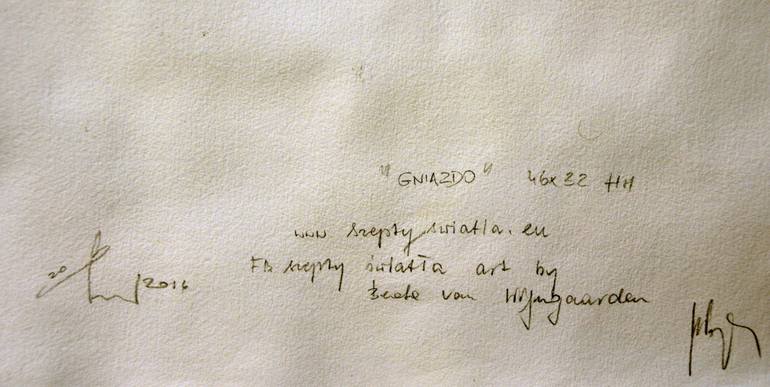 "GNIAZDO" 46x32
www szepty swiatla.eu
FB szepty światła art by
Beata van Wijngaarden
20 2016